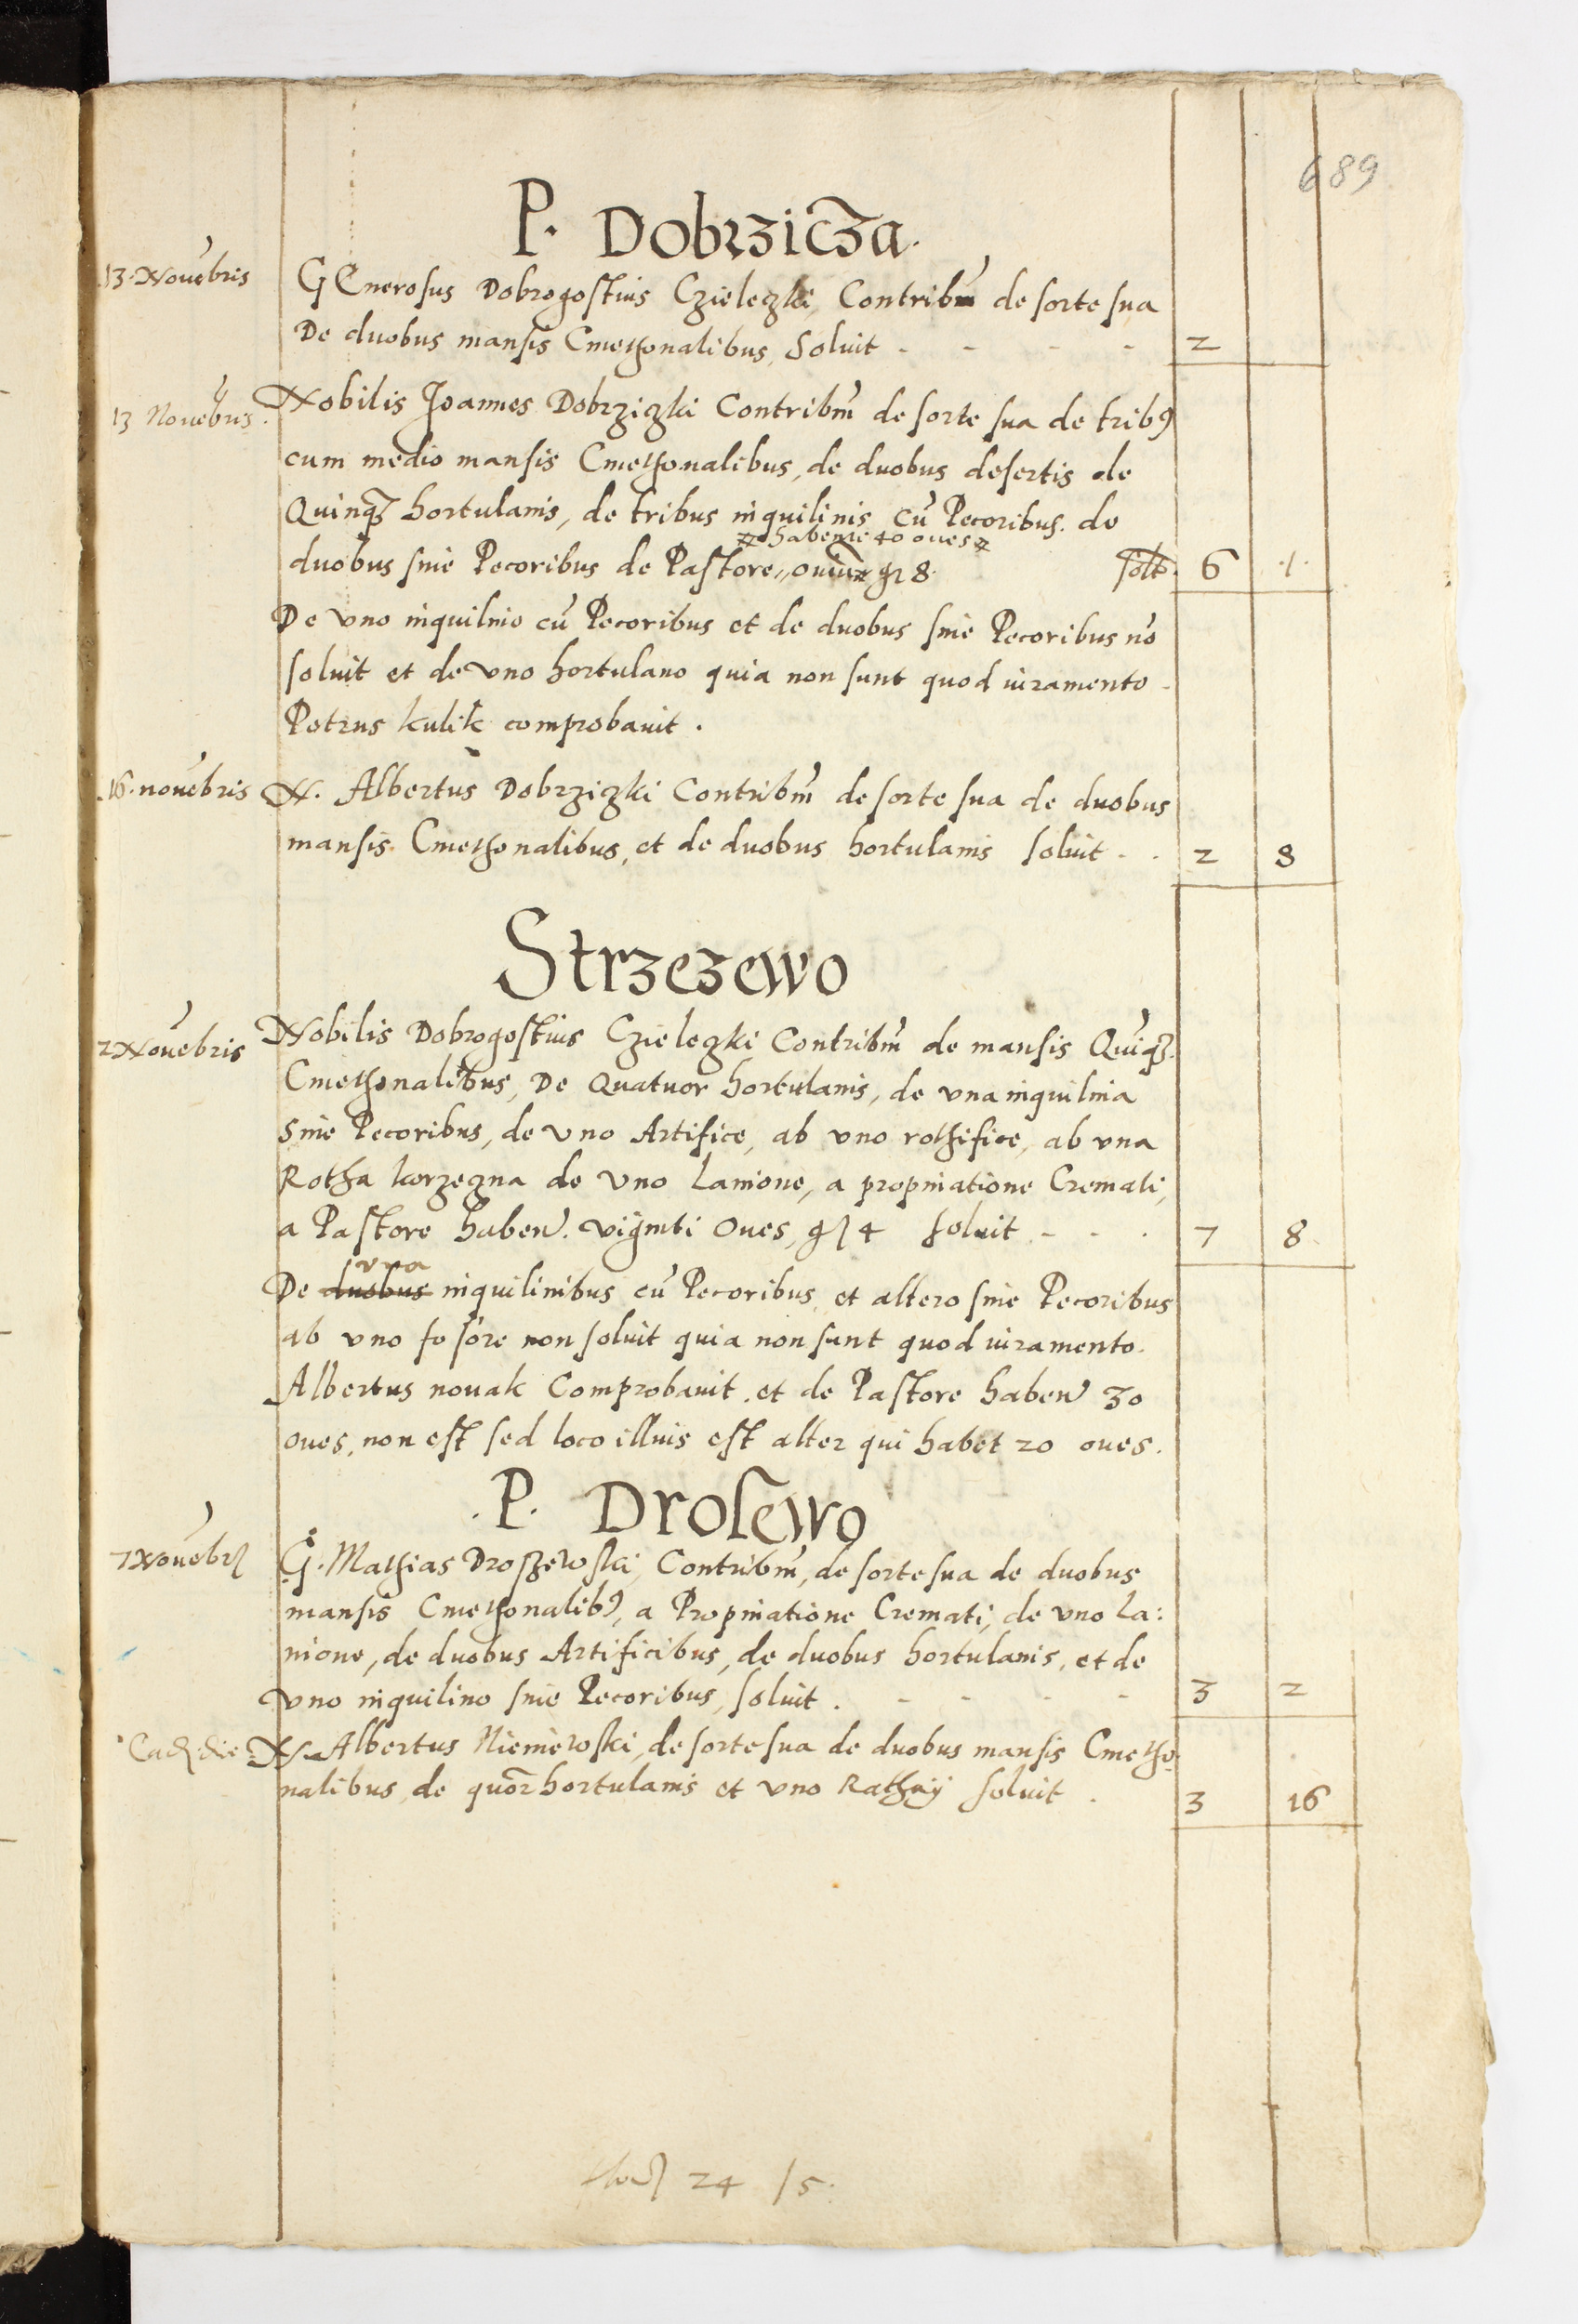 689
P. Dobrzicza.
13. Nouēbris GEnerosus Dobrogostius Czieleczki, Contribm̄ de sorte sua
De duobus mansis Cmethonalibus, Soluit - - - - 2
13 Nouēbris. Nobilis Joannes Dobrziczki Contribm̄ de sorte sua de trib9
cum medio mansis Cmethonalibus, de duobus desertis de
Quinq3 hortulanis, de tribus inquilinis cū Pecoribus. de
habente 40 oues
duobus sine Pecoribus de Pastore,, ouiū gr 8. solt. 6 .1.
De vno inquilino cū Pecoribus et de duobus sine Pecoribus nō
soluit et de vno hortulano quia non sunt quod iuramento
Petrus kulik comprobauit.
16. nouēbris N. Albertus Dobrziczki Contribm̄ de sorte sua de duobus
mansis Cmethonalibus, et de duobus hortulanis soluit - . 2 8
Strzezewo
2 Nouēbris Nobilis Dobrogostius Czieleczki Contribm̄ de mansis Quīq3
Cmethonalibus, De Quatuor hortulanis, de vna inquilina
Sine Pecoribus, de vno Artifice, ab vno rothifice, ab vna
Rotha korzeczna de vno Lanione, a propinatione Cremati,
a Pastore haben. viginti Oues, gr 4 soluit - - . 7 8
vna
De duobus inquilinibus cū Pecoribus, et altero sine Pecoribus
ab vno fosore non soluit quia non sunt quod iuramento.
Albertus nouak Comprobauit. et de Pastore haben 30
oues, non est sed loco illius est alter qui habet 20 oues.
.P. Drosewo
7 Nouēbr G. Mathias Droszewski, Contribm̄, de sorte sua de duobus
mansis Cmethonalib9, a Propinatione Cremati, de vno La:
nione, de duobus Artificibus, de duobus hortulanis, et de
vno inquilino sine Pecoribus, soluit . - - - - 3 2
Ead. die N. Albertus Niemiewski, de sorte sua de duobus mansis Cmetho
nalibus, de quor hortulanis et vno Rathaij soluit . 3 16
24 / 5.